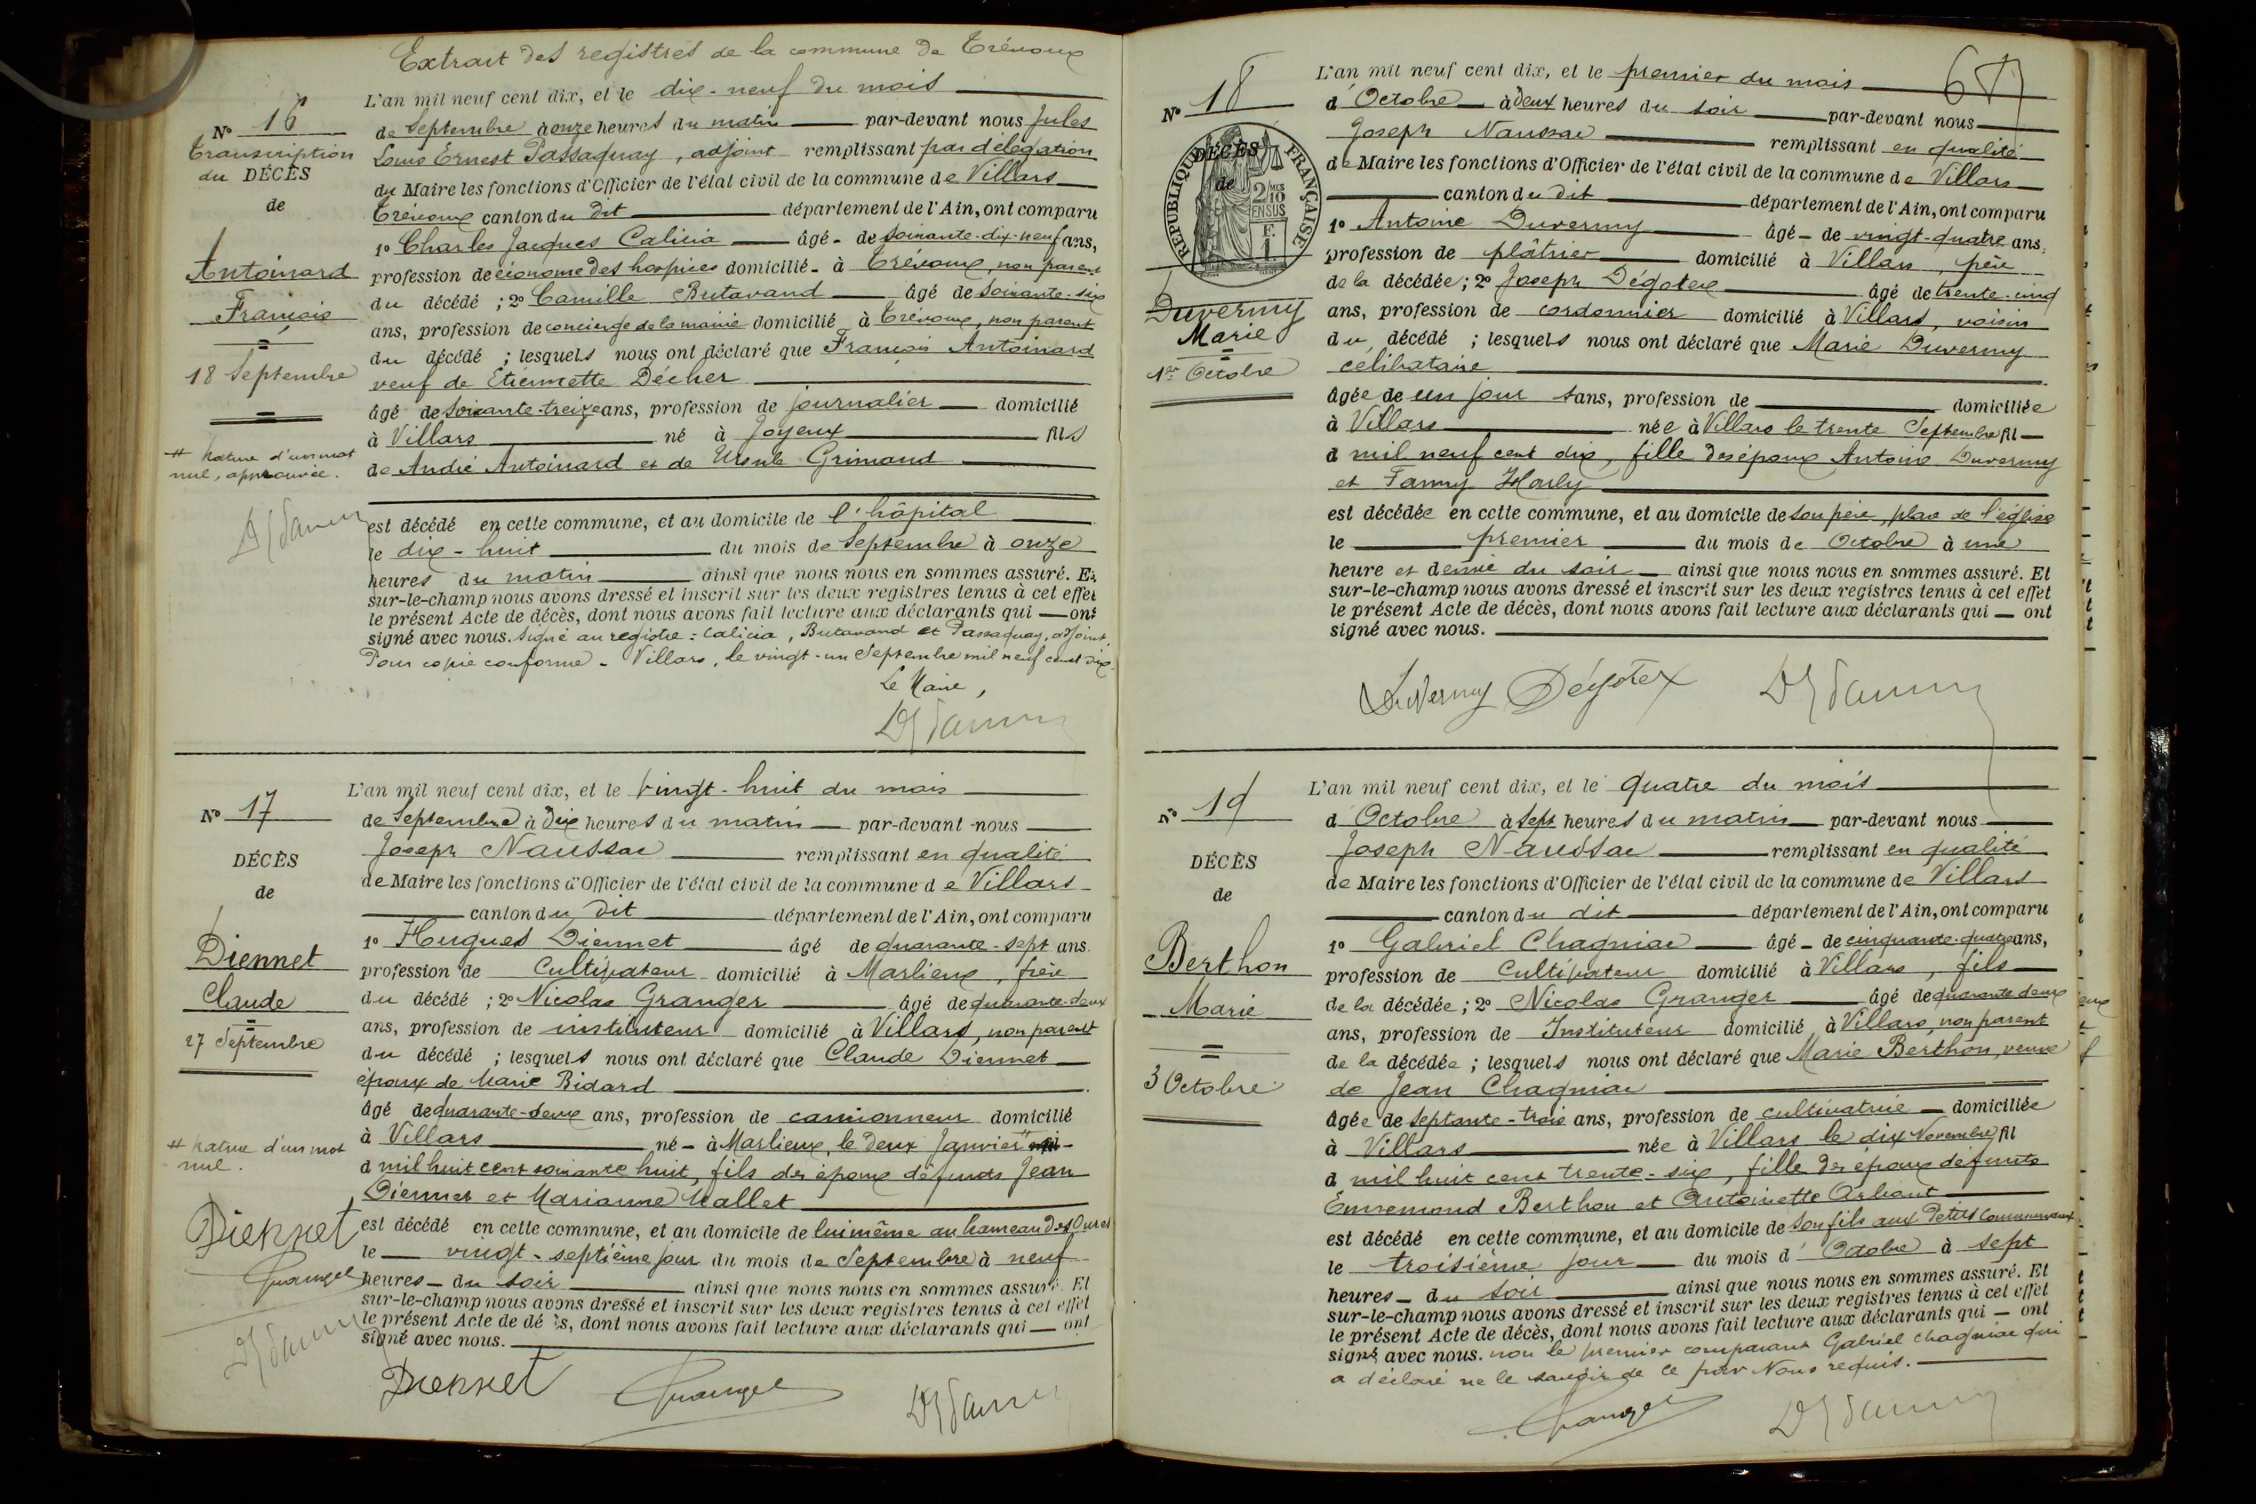 Extrait des registres de la commune de Trévoux
No 16
Transcription
du DÉCÈS
de
Antoinard
François
18 Septembre
# Rature d'un mot
nul, approuvée.
L'an mil neuf cent dix, et le dix-neuf du mois
de Septembre à onze heures du matin par-devant nous Jules
Louis Ernest Passaquay, adjoint remplissant par délégation
du Maire les fonctions d'Officier de l'état civil de la commune de Villars
Trévoux canton du dit département de l'Ain, ont comparu
1o Charles Jacques Calicia âgé de soixante-dix-neuf ans,
profession de économe des hospices domicilié à Trévoux, non parent
du décédé ; 2o Camille Butavand âgé de soixante-six
ans, profession de concierge de la mairie domicilié à Trévoux, non parent
du décédé ; lesquels nous ont déclaré que François Antoinard
veuf de Etiennette Décher
âgé de soixante-treize ans, profession de journalier domicilié
à Villars né à Joyeux fils
de André Antoinard et de Ursule Grimaud
est décédé en cette commune, et au domicile de l'hôpital
le dix-huit du mois de Septembre à onze
heures du matin ainsi que nous nous en sommes assuré. Et
sur-le-champ nous avons dressé et inscrit sur les deux registres tenus à cet effet
le présent Acte de décès, dont nous avons fait lecture aux déclarants qui — ont
signé avec nous. Signé au registre : Calicia, Butavand et Passaquay, adjoint.
Pour copie conforme - Villars, le vingt-un Septembre mil neuf cent dix.
Le Maire,
No 17
DÉCÈS
de
Diennet
Claude
27 Septembre
# Rature d'un mot
nul.
Diennet
Granger
L'an mil neuf cent dix, et le vingt-huit du mois
de Septembre à dix heures du matin par-devant nous
Joseph Naussac remplissant en qualité
de Maire les fonctions d'Officier de l'état civil de la commune de Villars
canton du dit département de l'Ain, ont comparu
1o Hugues Diennet âgé de quarante-sept ans.
profession de Cultivateur domicilié à Marlieux, frère
du décédé ; 2o Nicolas Granger âgé de quarante-deux
ans, profession de instituteur domicilié à Villars, non parent
du décédé ; lesquels nous ont déclaré que Claude Diennet
époux de Marie Bidard
âgé de quarante-deux ans, profession de camionneur domicilié
à Villars né - à Marlieux, le deux Janvier #
d mil huit cent soixante huit, fils des époux défunts Jean
Diennet et Marianne Mallet
est décédé en cette commune, et au domicile de lui même au hameau des
le vingt-septième jour du mois de Septembre à neuf
heures - du soir ainsi que nous nous en sommes assuré. Et
sur-le-champ nous avons dressé et inscrit sur les deux registres tenus à cet effet
le présent Acte de décès, dont nous avons fait lecture aux déclarants qui — ont
signé avec nous.
Diennet Granger
67
No 18
RÉPUBLIQUE FRANÇAISE
DÉCÈS
de
2/10 EN SUS
Duvernay
Marie
1er Octobre
L'an mil neuf cent dix, et le premier du mois
d'Octobre à deux heures du soir par-devant nous
Joseph Naussac remplissant en qualité
de Maire les fonctions d'Officier de l'état civil de la commune de Villars
canton du dit département de l'Ain, ont comparu
1o Antoine Duvernay âgé - de vingt-quatre ans,
profession de plâtrier domicilié à Villars, père
de la décédée ; 2o Joseph Dégotex âgé de trente-cinq
ans, profession de cordonnier domicilié à Villars, voisin
du décédé ; lesquels nous ont déclaré que Marie Duvernay
célibataire
âgée de un jour sans, profession de domiciliée
à Villars née à Villars le trente Septembre fil
d mil neuf cent dix, fille des époux Antoine Duvernay
et Fanny
est décédée en cette commune, et au domicile de son père, place de l'église
le premier du mois de Octobre à une
heure et demie du soir ainsi que nous nous en sommes assuré. Et
sur-le-champ nous avons dressé et inscrit sur les deux registres tenus à cet effet
le présent Acte de décès, dont nous avons fait lecture aux déclarants qui — ont
signé avec nous.
Duvernay Dégotex
No 19
DÉCÈS
de
Berthon
Marie
3 Octobre
L'an mil neuf cent dix, et le quatre du mois
d'Octobre à sept heures du matin par-devant nous
Joseph Naussac remplissant en qualité
de Maire les fonctions d'Officier de l'état civil de la commune de Villars
canton du dit département de l'Ain, ont comparu
1o Gabriel Chagniac âgé - de cinquante-quatre ans,
profession de Cultivateur domicilié à Villars, fils
de la décédée ; 2o Nicolas Granger âgé de quarante deux
ans, profession de Instituteur domicilié à Villars, non parent
de la décédée ; lesquels nous ont déclaré que Marie Berthon, veuve
de Jean Chagniac
âgée de septante-trois ans, profession de cultivatrice domiciliée
à Villars née à Villars le dix Novembre fil
d mil huit cent trente-six, fille des époux défunts
Ennemond Berthon et Antoinette Arbiant
est décédé en cette commune, et au domicile de son fils aux Petits Communaux
le troisième jour du mois d'Octobre à sept
heures - du soir ainsi que nous nous en sommes assuré. Et
sur-le-champ nous avons dressé et inscrit sur les deux registres tenus à cet effet
le présent Acte de décès, dont nous avons fait lecture aux déclarants qui — ont
signé avec nous. non le premier comparant Gabriel Chagniac qui
a déclaré ne le savoir de ce par Nous requis.
Granger